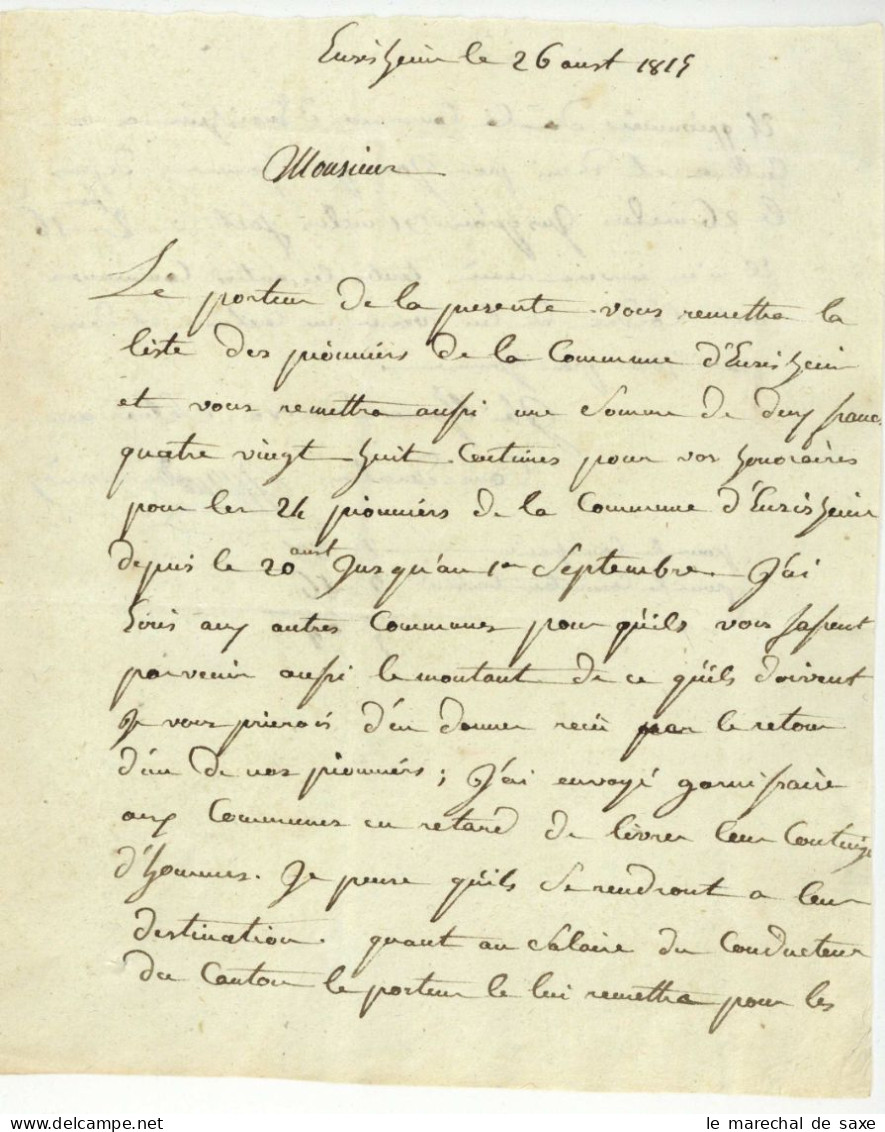 Ensisheim le 26 aust 1815
Monsieur
Le porteur de la presente vous remettra la
liste des pionniérs de la Commune d'Ensisheim
et vous remettra aussi une Somme de deux francs
quatre vingt huit Centimes pour vos honoraires
pour les 24 pionniérs de la Commune d'Ensisheim
depuis le 20 aust Jusqu'au 1er Septembre. J'ai
Ecris aux autres Communes pour qu'ils vous fassent
parvenir aussi le montant de ce qu'ils doivent
Je vous prierois d'en donner recu par le retour
d'un de nos pionniérs; J'ai envoyé garnissaire
aux Communes en retard de livrer leur Conting
d'hommes. Je pense qu'ils Se rendront a leur
destination. quant au Salaire du Conducteur
du Canton le porteur le lui remettra pour les
le marechal de saxe